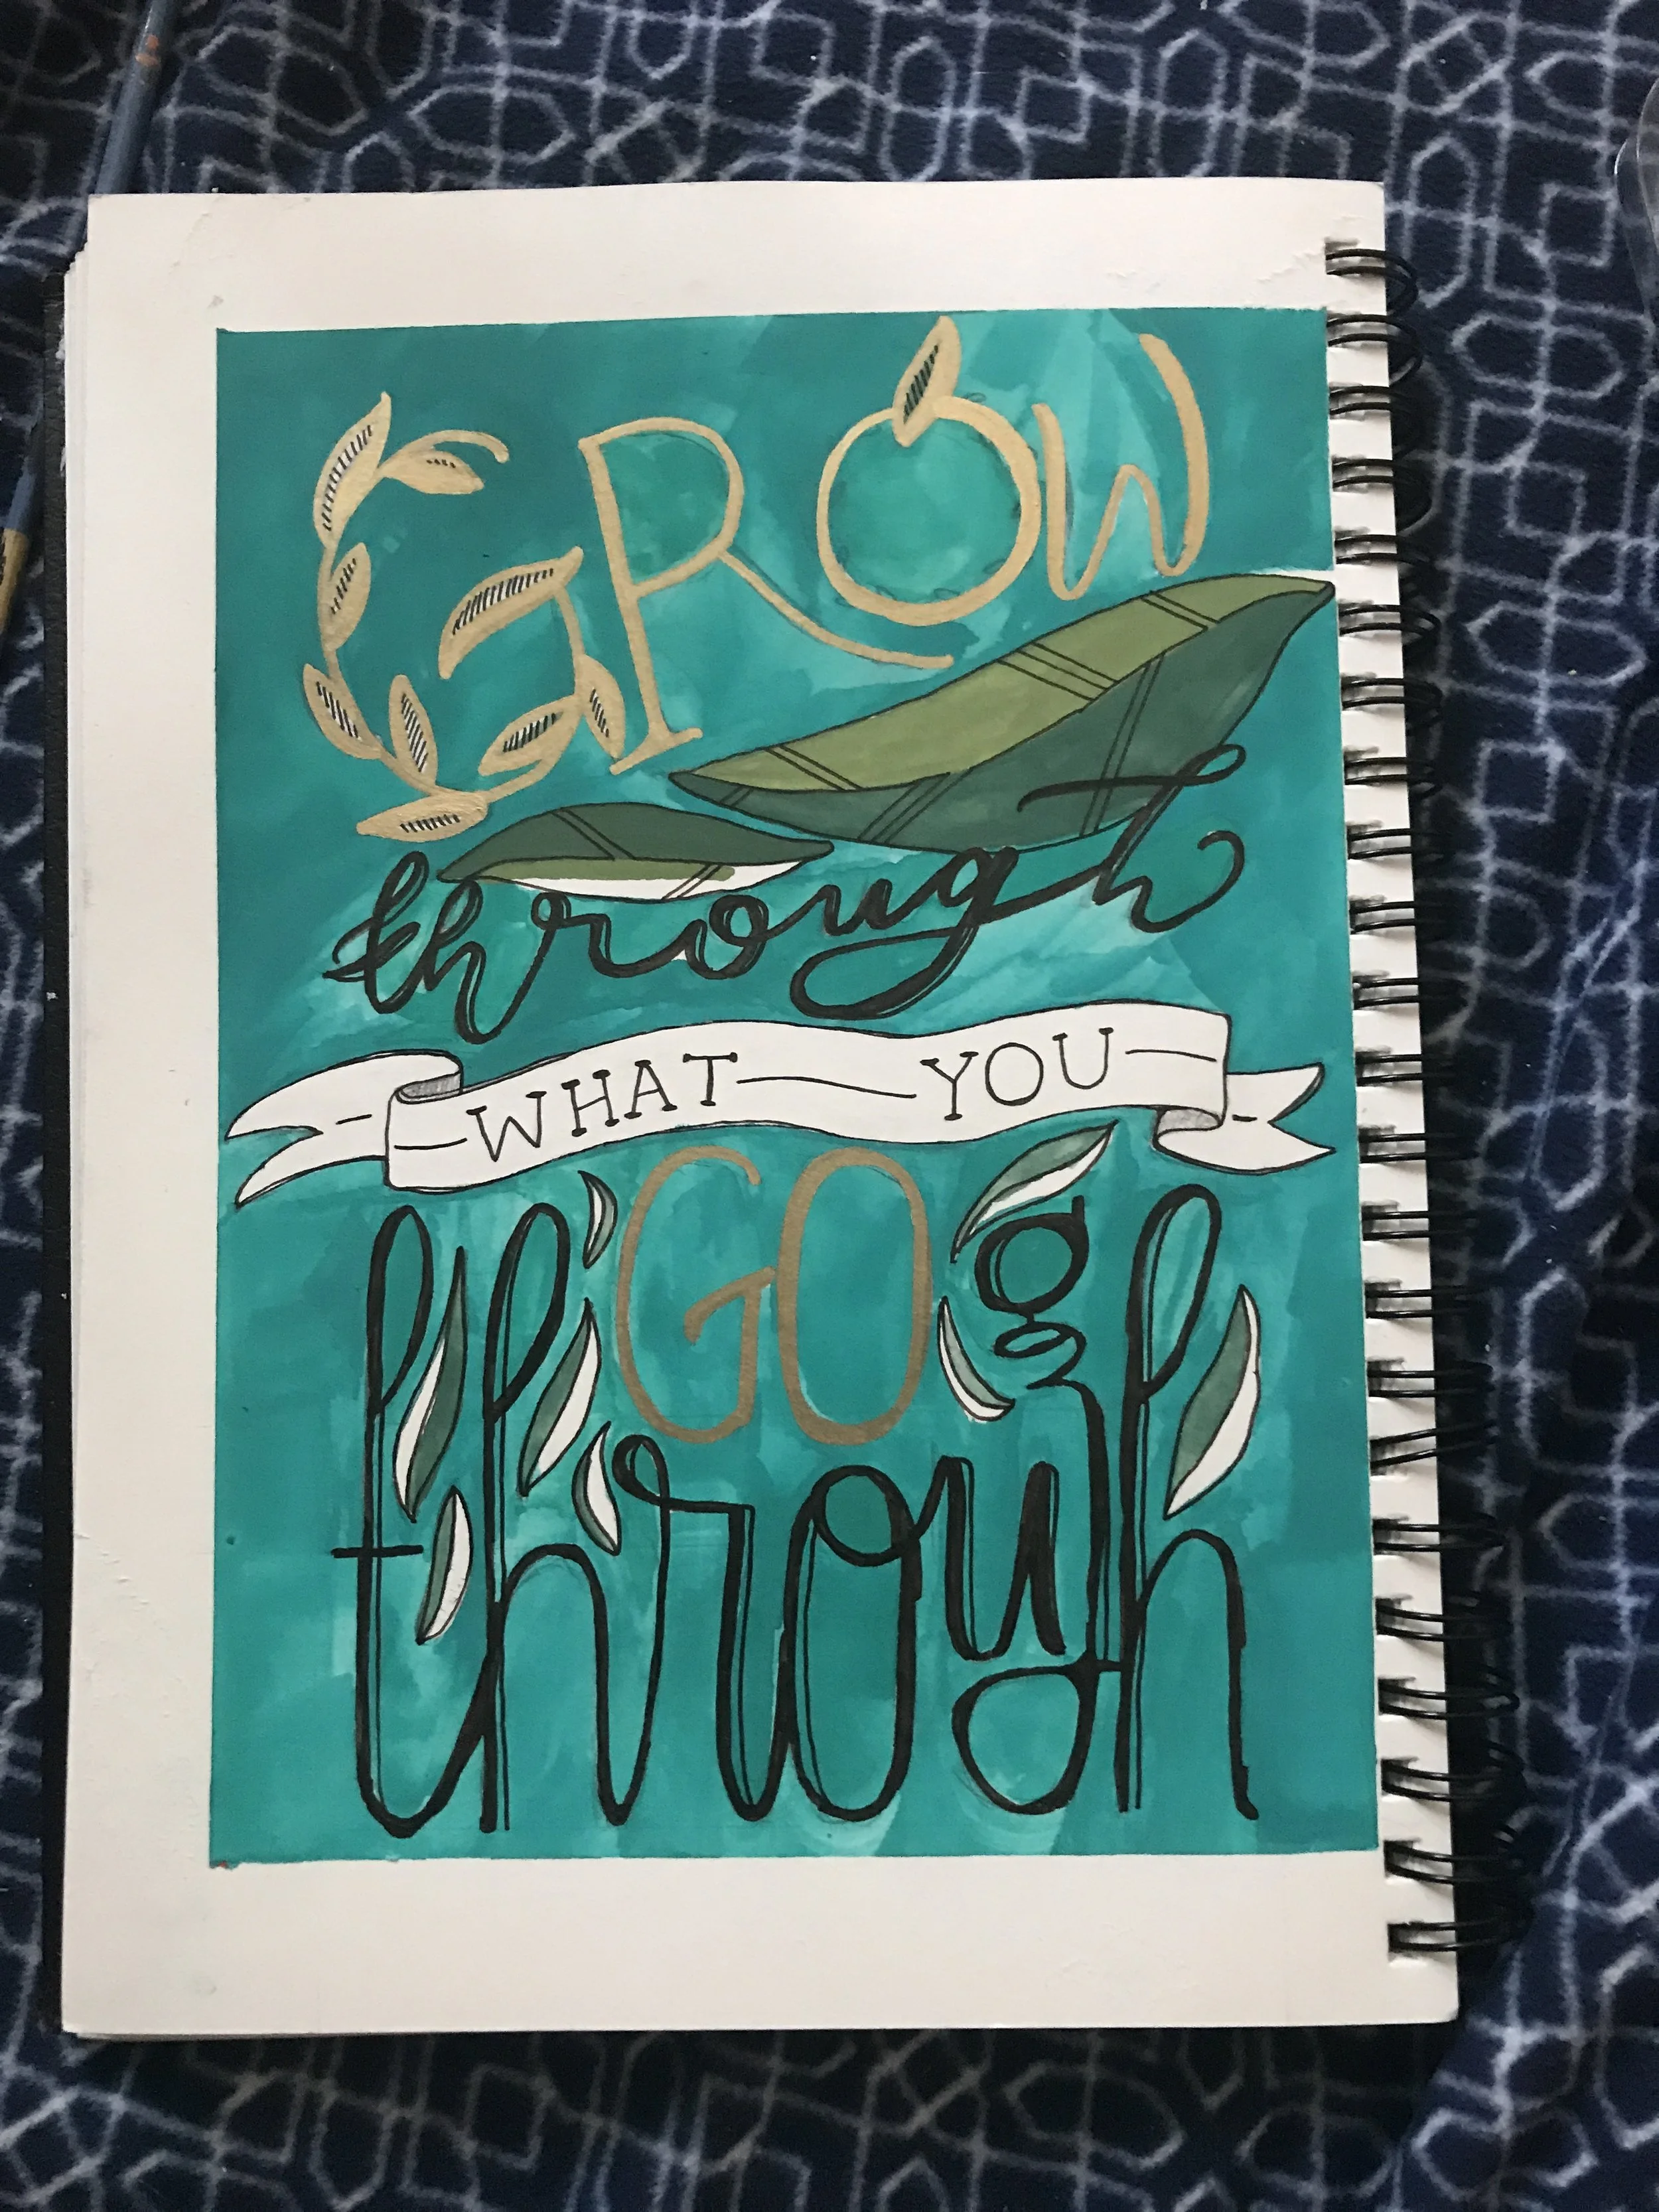 GROW
through
WHAT YOU
GO
through